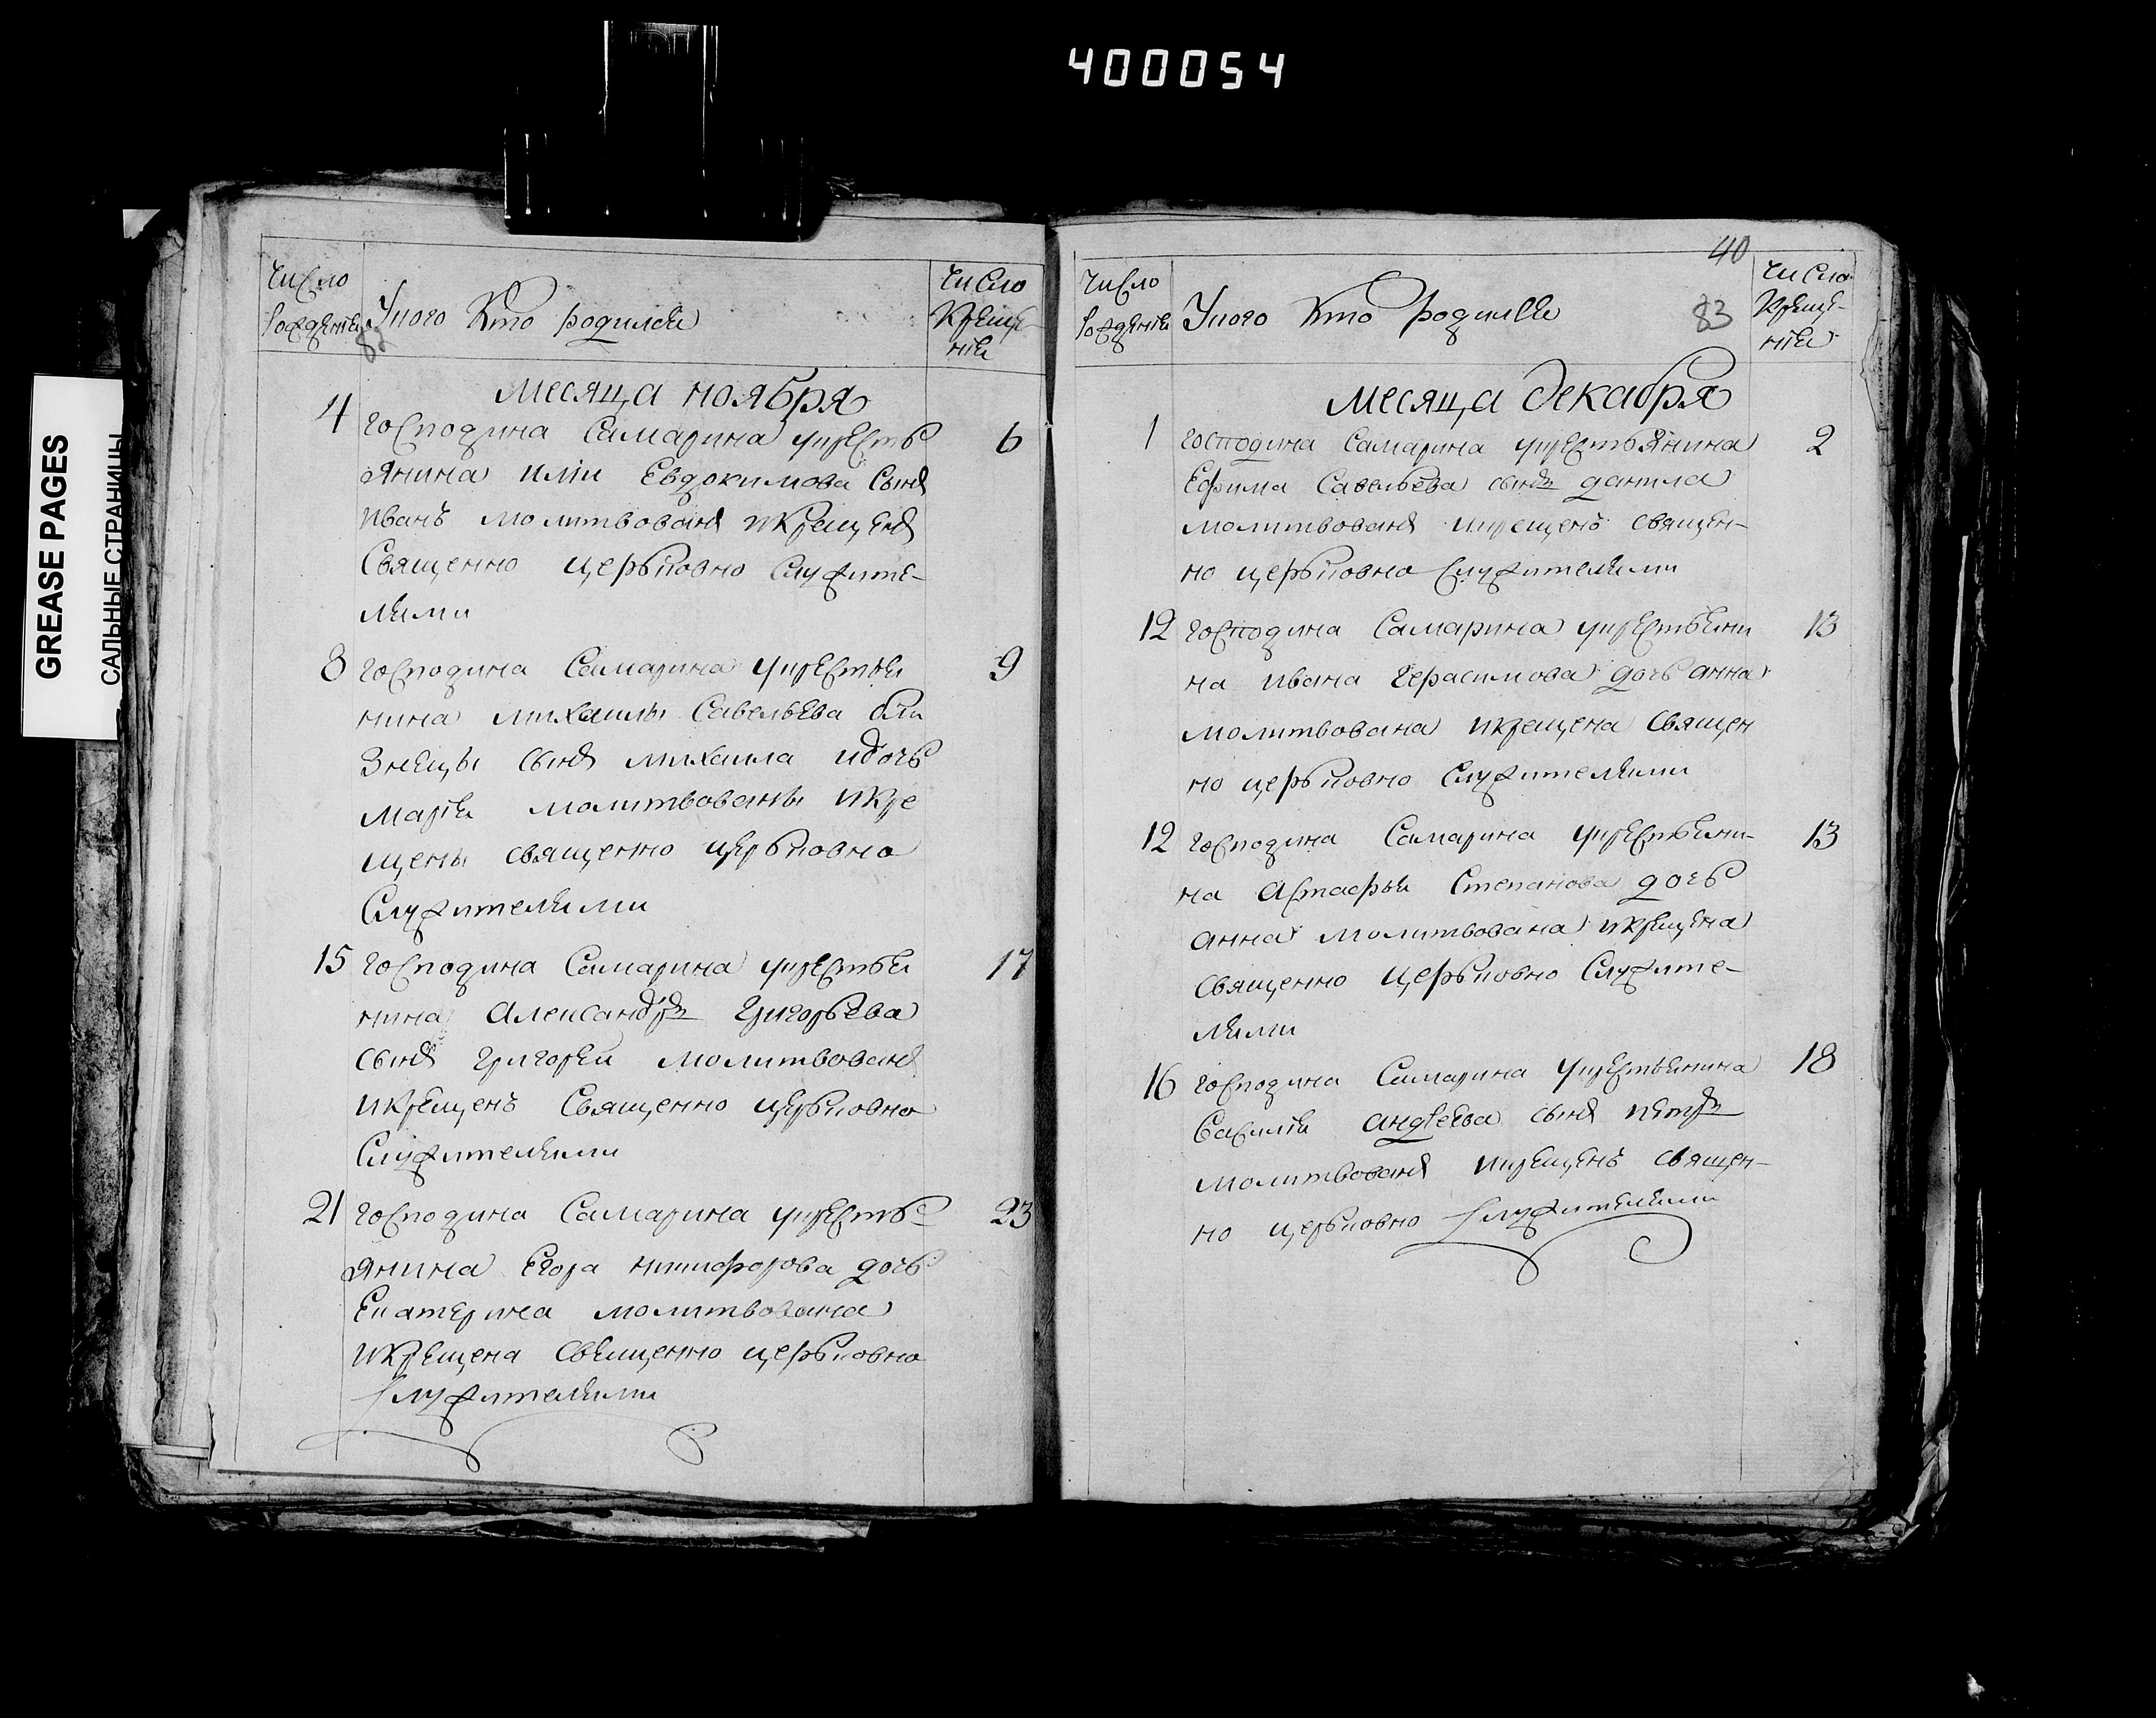 400054
GREASE PAGES
САЛЬНЫЕ СТРАНИЦЫ
число рожденiя
Укого Кто родился
число Крещенiя
82
месяца ноября
4 господина Самарина укрестъ 6
янина илiи Евдокимова сынъ
иванъ молитвованъ икрещенъ
Священно церьковно служите-
лями
8 господина Самарина укрестья 9
нина михаилы Савельева бли
знецы сынъ михаила идочь
марiя молитвованы икре
щены священно церьковно
служителями
15 господина Самарина укрестья 17
нина Александръ Григорьева
сынъ григорей молитвованъ
икрещенъ Священно церьковно
Служителями
21 господина Самарина укресть- 23
янина Егора никифорова дочь
Екатерина молитвована
икрещена священно церьковно
служителями
40
число рожденiя
Укого Кто родился
83
числа Крещенiя
месяца декабря
1 господина Самарина укрестьянина 2
Ефима Савельева сынъ данила
молитвованъ икрещенъ священ-
но церьковно служителями
12 господина Самарина укрестьяни 13
на ивана Герасимова дочь анна
молитвована икрещена священ
но церьковно служителями
12 господина Самарина укрестьяни- 13
на Астафья Степанова дочь
анна молитвована икрещена
священно церьковно Служите-
лями
16 господина Самарина укрестьянина 18
Василiя андреева сынъ петръ
молитвованъ икрещенъ священ-
но церьковно служителями